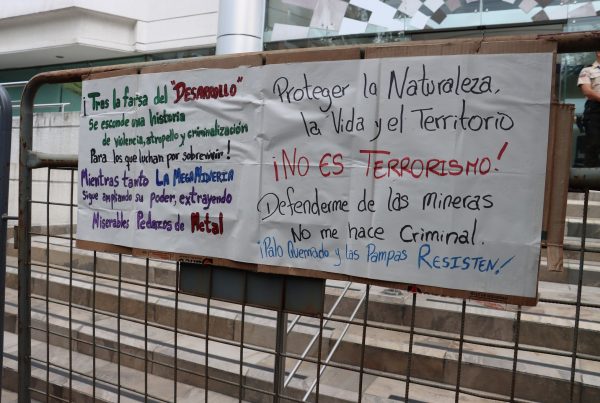 ¡Tras la farsa del "DESARROLLO"
Se esconde una historia
de violencia, atropello y criminalización
Para los que luchan por sobrevivir!
Mientras tanto LA MEGAMINERIA
sigue ampliando su poder, extrayendo
Miserables Pedazos de Metal
Proteger la Naturaleza,
la Vida y el Territorio
¡NO ES TERRORISMO!
Defenderme de las mineras
No me hace Criminal.
¡Palo Quemado y las Pampas RESISTEN!